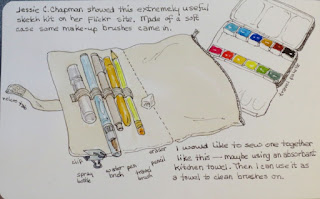 Jessie C. Chapman showed this extremely useful
sketch kit on her Flickr site. Made of a soft
case some make-up brushes came in.
velcro tab
clip
spray bottle
water pen brush
travel brush
pencil
eraser
I would like to sew one together
like this --- maybe using an absorbant
kitchen towel. Then I can use it as
a towel to clean brushes on.